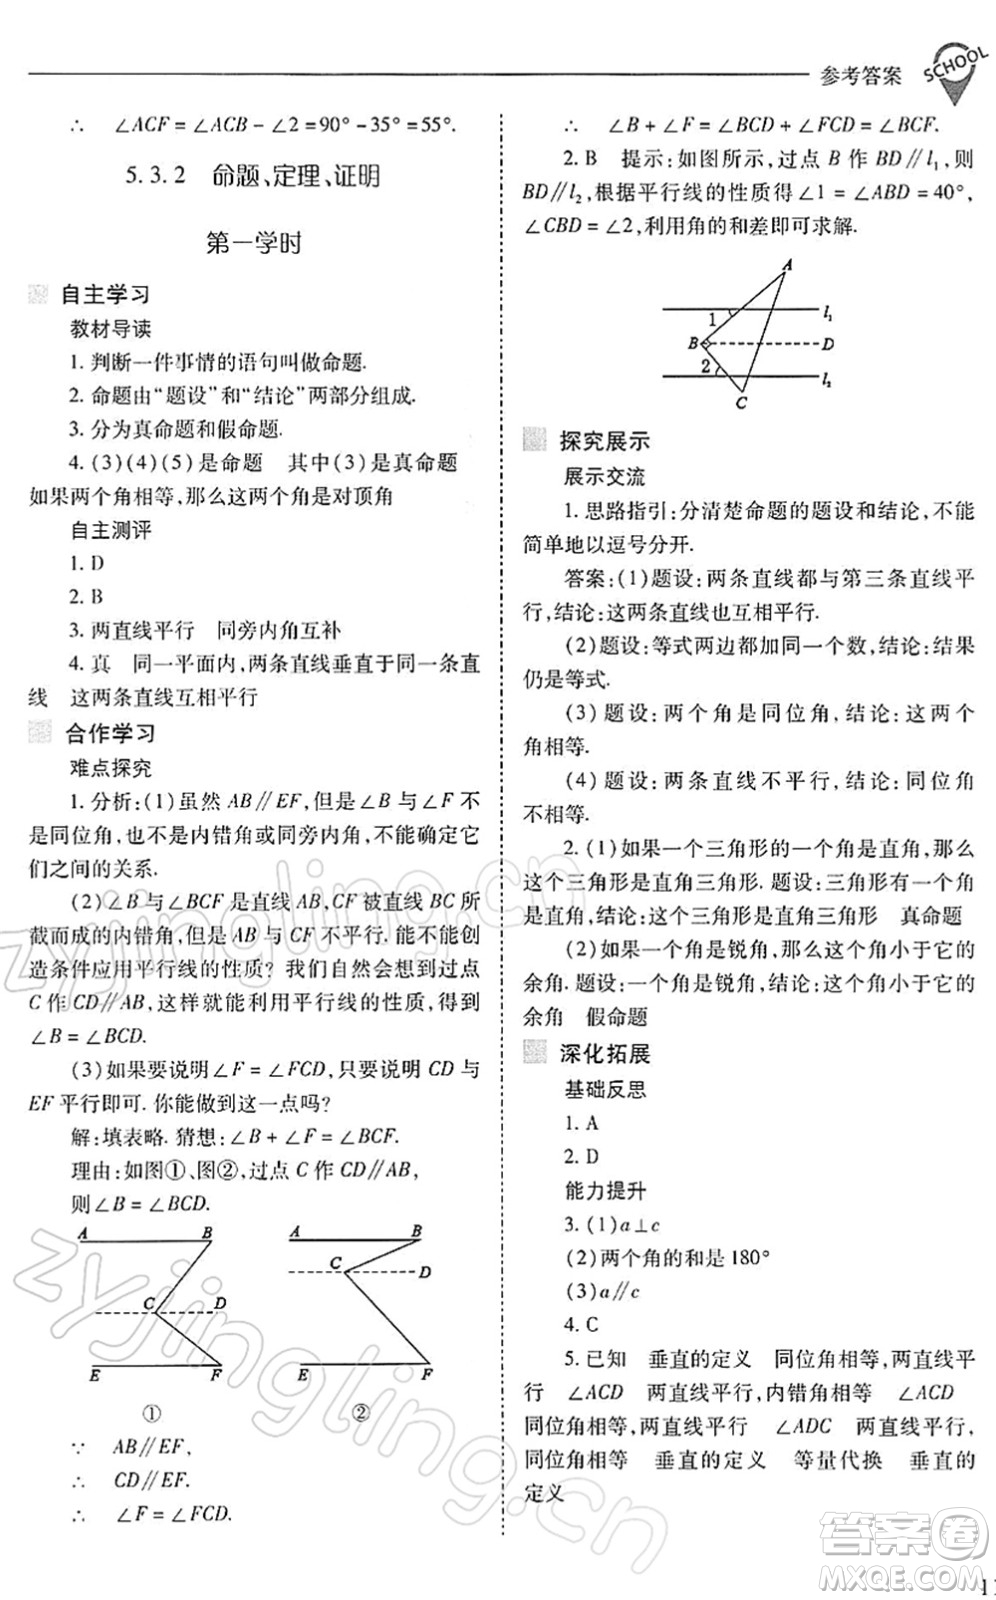 参考答案
SCHOOL
∴ ∠ACF=∠ACB-∠2=90°-35°=55°.
5.3.2 命题、定理、证明
第一学时
自主学习
教材导读
1. 判断一件事情的语句叫做命题.
2. 命题由“题设”和“结论”两部分组成.
3. 分为真命题和假命题.
4. (3)(4)(5)是命题 其中(3)是真命题
如果两个角相等,那么这两个角是对顶角
自主测评
1. D
2. B
3. 两直线平行 同旁内角互补
4. 真 同一平面内,两条直线垂直于同一条直
线 这两条直线互相平行
合作学习
难点探究
1. 分析:(1)虽然 AB∥EF,但是∠B 与∠F 不
是同位角,也不是内错角或同旁内角,不能确定它
们之间的关系.
(2)∠B 与∠BCF 是直线 AB,CF 被直线 BC 所
截而成的内错角,但是 AB 与 CF 不平行. 能不能创
造条件应用平行线的性质? 我们自然会想到过点
C 作 CD∥AB,这样就能利用平行线的性质,得到
∠B=∠BCD.
(3)如果要说明∠F=∠FCD,只要说明 CD 与
EF 平行即可. 你能做到这一点吗?
解:填表略. 猜想:∠B+∠F=∠BCF.
理由:如图①、图②,过点 C 作 CD∥AB,
则∠B=∠BCD.
A B
C D
E F
①
A B
C D
E F
②
∵ AB∥EF,
∴ CD∥EF.
∴ ∠F=∠FCD.
∴ ∠B+∠F=∠BCD+∠FCD=∠BCF.
2. B 提示:如图所示,过点 B 作 BD∥l₁,则
BD∥l₂,根据平行线的性质得∠1=∠ABD=40°,
∠CBD=∠2,利用角的和差即可求解.
A
1 l₁
B D
2 l₂
C
探究展示
展示交流
1. 思路指引:分清楚命题的题设和结论,不能
简单地以逗号分开.
答案:(1)题设:两条直线都与第三条直线平
行,结论:这两条直线也互相平行.
(2)题设:等式两边都加同一个数,结论:结果
仍是等式.
(3)题设:两个角是同位角,结论:这两个
角相等.
(4)题设:两条直线不平行,结论:同位角
不相等.
2. (1)如果一个三角形的一个角是直角,那么
这个三角形是直角三角形. 题设:一个三角形有一个角
是直角,结论:这个三角形是直角三角形 真命题
(2)如果一个角是锐角,那么这个角小于它的
余角. 题设:一个角是锐角,结论:这个角小于它的
余角 假命题
深化拓展
基础反思
1. A
2. D
能力提升
3. (1)a⊥c
(2)两个角的和是 180°
(3)a∥c
4. C
5. 已知 垂直的定义 同位角相等,两直线平
行 ∠ACD 两直线平行,内错角相等 ∠ACD
同位角相等,两直线平行 ∠ADC 两直线平行,
同位角相等 垂直的定义 等量代换 垂直的
定义
zyjingling.cn
zyjingling.cn
答案卷
MXQE.COM